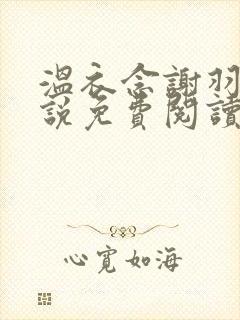 溫衣念謝羽
說免費閱讀
心寬如海